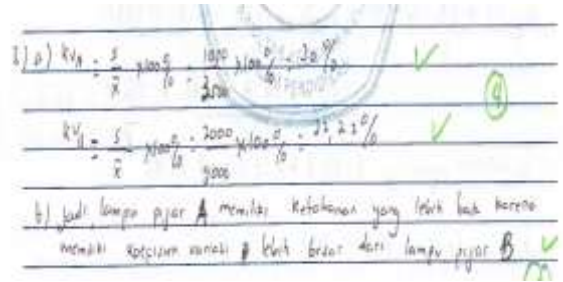 a) KV_A = s/x̄ × 100% = 1000/3500 × 100% =
4
KV_B = s/x̄ × 100% = 2000/9000 × 100% = 22,22%
b) Jadi lampu pijar A memiliki ketahanan yang lebih baik karena
memiliki koefisien variasi lebih besar dari lampu pijar B